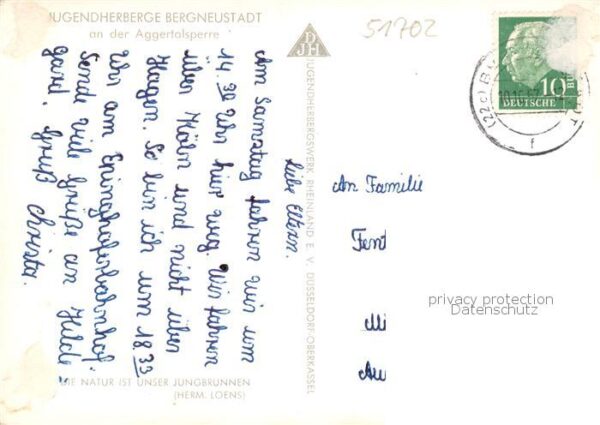 JUGENDHERBERGE BERGNEUSTADT
an der Aggertalsperre
51702
DJH
JUGENDHERBERGSWERK RHEINLAND E. V. DÜSSELDORF-OBERKASSEL
10
DEUTSCHE BU
(22c) B
f
Liebe Eltern.
Am Samstag fahren wir um
14.30 Uhr hier weg. Wir fahren
über Köln und nicht über
Hagen. So bin ich um 18.33
Uhr am
Sende viele Grüße an Hilde
Gruß Christa.
An Familie
Fent
Mi
Au
privacy protection
Datenschutz
DIE NATUR IST UNSER JUNGBRUNNEN
(HERM. LOENS)